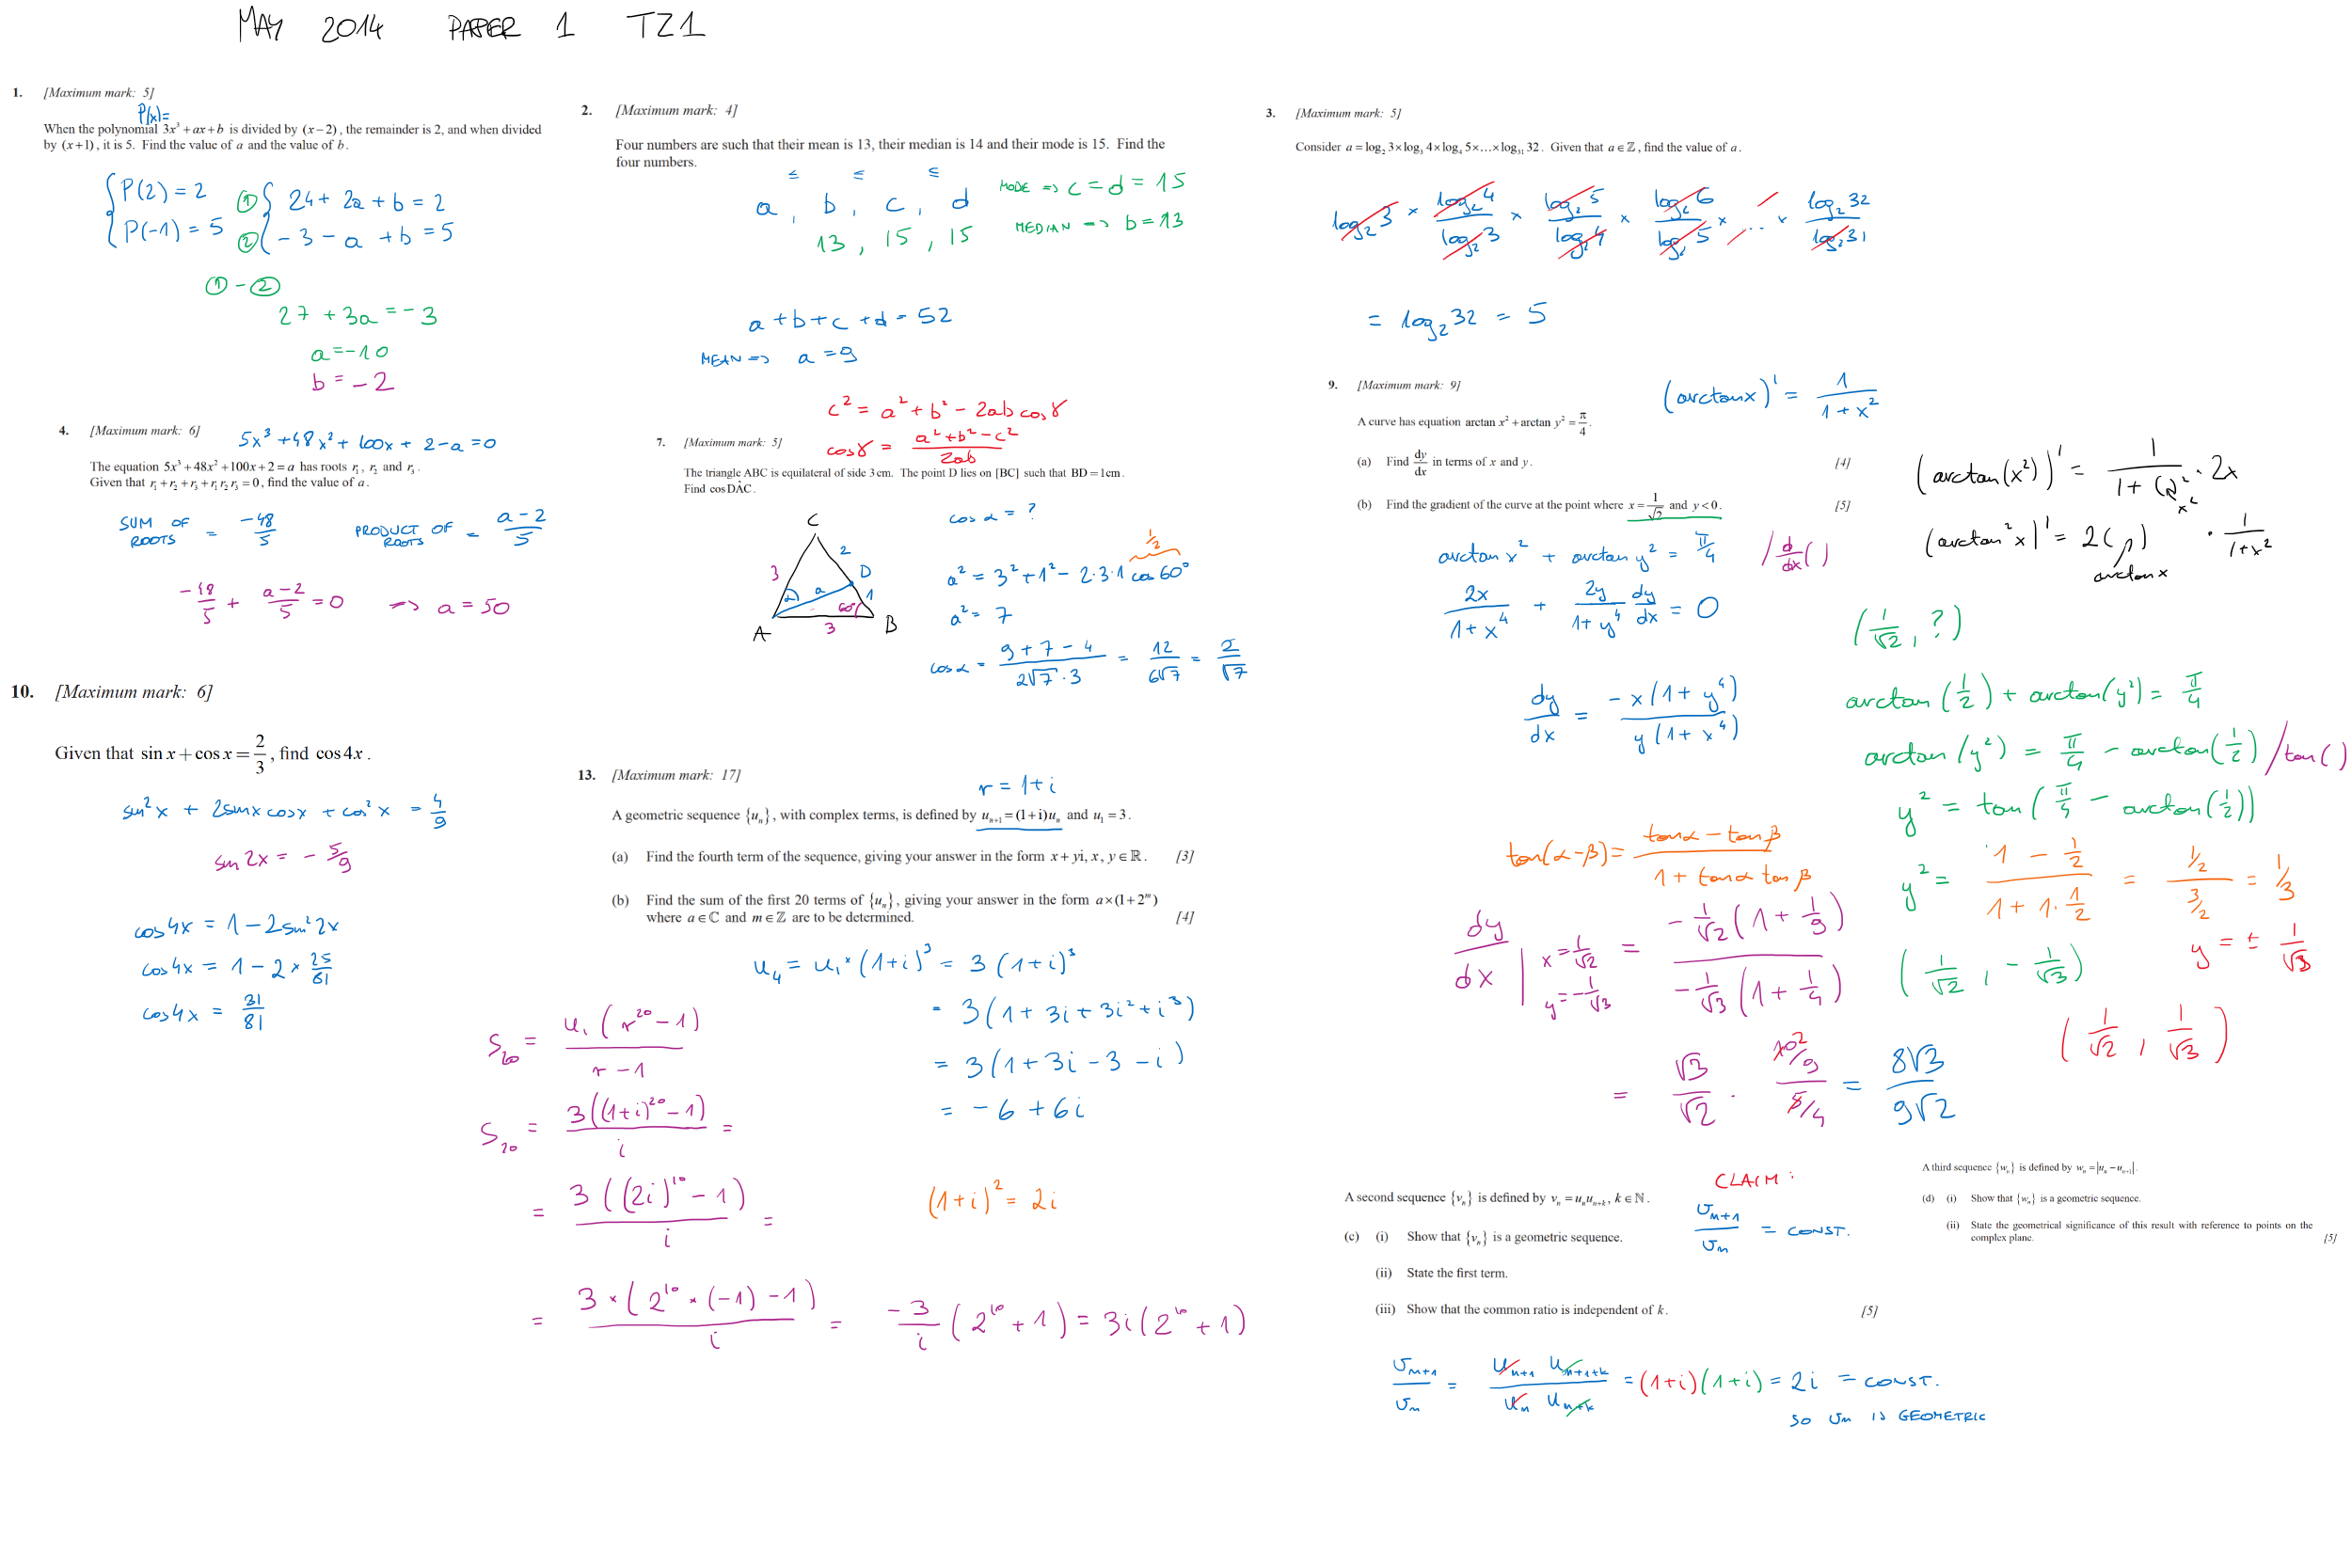 MAY 2014 PAPER 1 TZ1
1. [Maximum mark: 5]
P(x)=
When the polynomial 3x³ + ax + b is divided by (x−2), the remainder is 2, and when divided
by (x+1), it is 5. Find the value of a and the value of b.
{ P(2) = 2 ① { 24 + 2a + b = 2
P(-1) = 5 ② -3 - a + b = 5
① - ②
27 + 3a = -3
a = -10
b = -2
2. [Maximum mark: 4]
Four numbers are such that their mean is 13, their median is 14 and their mode is 15. Find the
four numbers.
≤ ≤ ≤
a, b, c, d MODE => c = d = 15
13, 15, 15 MEDIAN => b = 13
a + b + c + d = 52
MEAN => a = 9
3. [Maximum mark: 5]
Consider a = log₂ 3 × log₃ 4 × log₄ 5 × … × log₃₁ 32. Given that a ∈ ℤ, find the value of a.
log₂3 × log₂4/log₂3 × log₂5/log₂4 × log₂6/log₂5 × ... × log₂32/log₂31
= log₂32 = 5
4. [Maximum mark: 6]
5x³ + 48x² + 100x + 2 - a = 0
The equation 5x³ + 48x² + 100x + 2 = a has roots r₁, r₂ and r₃.
Given that r₁ + r₂ + r₃ + r₁r₂r₃ = 0, find the value of a.
SUM OF ROOTS = -48/5 PRODUCT OF ROOTS = a-2/5
-48/5 + a-2/5 = 0 => a = 50
c² = a² + b² - 2ab cos γ
cos γ = a² + b² - c²/2ab
7. [Maximum mark: 5]
The triangle ABC is equilateral of side 3 cm. The point D lies on [BC] such that BD = 1 cm.
Find cos DÂC.
C
2
3
D
α
a
1
60°
A
3
B
cos α = ?
1/2
a² = 3² + 1² - 2·3·1 cos 60°
a² = 7
cos α = 9 + 7 - 4/2√7·3 = 12/6√7 = 2/√7
9. [Maximum mark: 9]
A curve has equation arctan x² + arctan y² = π/4.
(a) Find dy/dx in terms of x and y. [4]
(b) Find the gradient of the curve at the point where x = 1/√2 and y < 0. [5]
(arctan x)' = 1/1 + x²
(arctan(x²))' = 1/1 + ( )² · 2x
x²
(arctan² x)' = 2( ) · 1/1+x²
arctan x
arctan x² + arctan y² = π/4 / d/dx ( )
2x/1 + x⁴ + 2y/1 + y⁴ dy/dx = 0
dy/dx = -x(1 + y⁴)/y(1 + x⁴)
(1/√2, ?)
arctan(1/2) + arctan(y²) = π/4
arctan(y²) = π/4 - arctan(1/2) / tan( )
y² = tan(π/4 - arctan(1/2))
tan(α-β) = tan α - tan β/1 + tan α tan β
y² = 1 - 1/2/1 + 1·1/2 = 1/2/3/2 = 1/3
y = ± 1/√3
(1/√2, -1/√3)
(1/√2, 1/√3)
dy/dx | x = 1/√2 y = -1/√3 = -1/√2(1 + 1/9)/-1/√3(1 + 1/4)
= √3/√2 · 10/9/5/4 = 8√3/9√2
2
10. [Maximum mark: 6]
Given that sin x + cos x = 2/3, find cos 4x.
sin²x + 2sinx cosx + cos²x = 4/9
sin 2x = -5/9
cos4x = 1 - 2sin²2x
cos4x = 1 - 2 × 25/81
cos4x = 31/81
13. [Maximum mark: 17]
r = 1 + i
A geometric sequence {uₙ}, with complex terms, is defined by uₙ₊₁ = (1+i)uₙ and u₁ = 3.
(a) Find the fourth term of the sequence, giving your answer in the form x + yi, x, y ∈ ℝ. [3]
(b) Find the sum of the first 20 terms of {uₙ}, giving your answer in the form a × (1 + 2ᵐ)
where a ∈ ℂ and m ∈ ℤ are to be determined. [4]
u₄ = u₁ × (1+i)³ = 3(1+i)³
= 3(1 + 3i + 3i² + i³)
= 3(1 + 3i - 3 - i)
= -6 + 6i
S₂₀ = u₁(r²⁰ - 1)/r - 1
S₂₀ = 3((1+i)²⁰ - 1)/i =
= 3((2i)¹⁰ - 1)/i =
(1+i)² = 2i
= 3 × (2¹⁰ × (-1) - 1)/i = -3/i (2¹⁰ + 1) = 3i(2¹⁰ + 1)
A second sequence {vₙ} is defined by vₙ = uₙuₙ₊ₖ, k ∈ ℕ.
(c) (i) Show that {vₙ} is a geometric sequence.
(ii) State the first term.
(iii) Show that the common ratio is independent of k. [5]
CLAIM:
vₙ₊₁/vₙ = CONST.
vₙ₊₁/vₙ = uₙ₊₁ uₙ₊₁₊ₖ/uₙ uₙ₊ₖ = (1+i)(1+i) = 2i = CONST.
SO vₙ IS GEOMETRIC
A third sequence {wₙ} is defined by wₙ = |uₙ − uₙ₊₁|.
(d) (i) Show that {wₙ} is a geometric sequence.
(ii) State the geometrical significance of this result with reference to points on the
complex plane. [5]